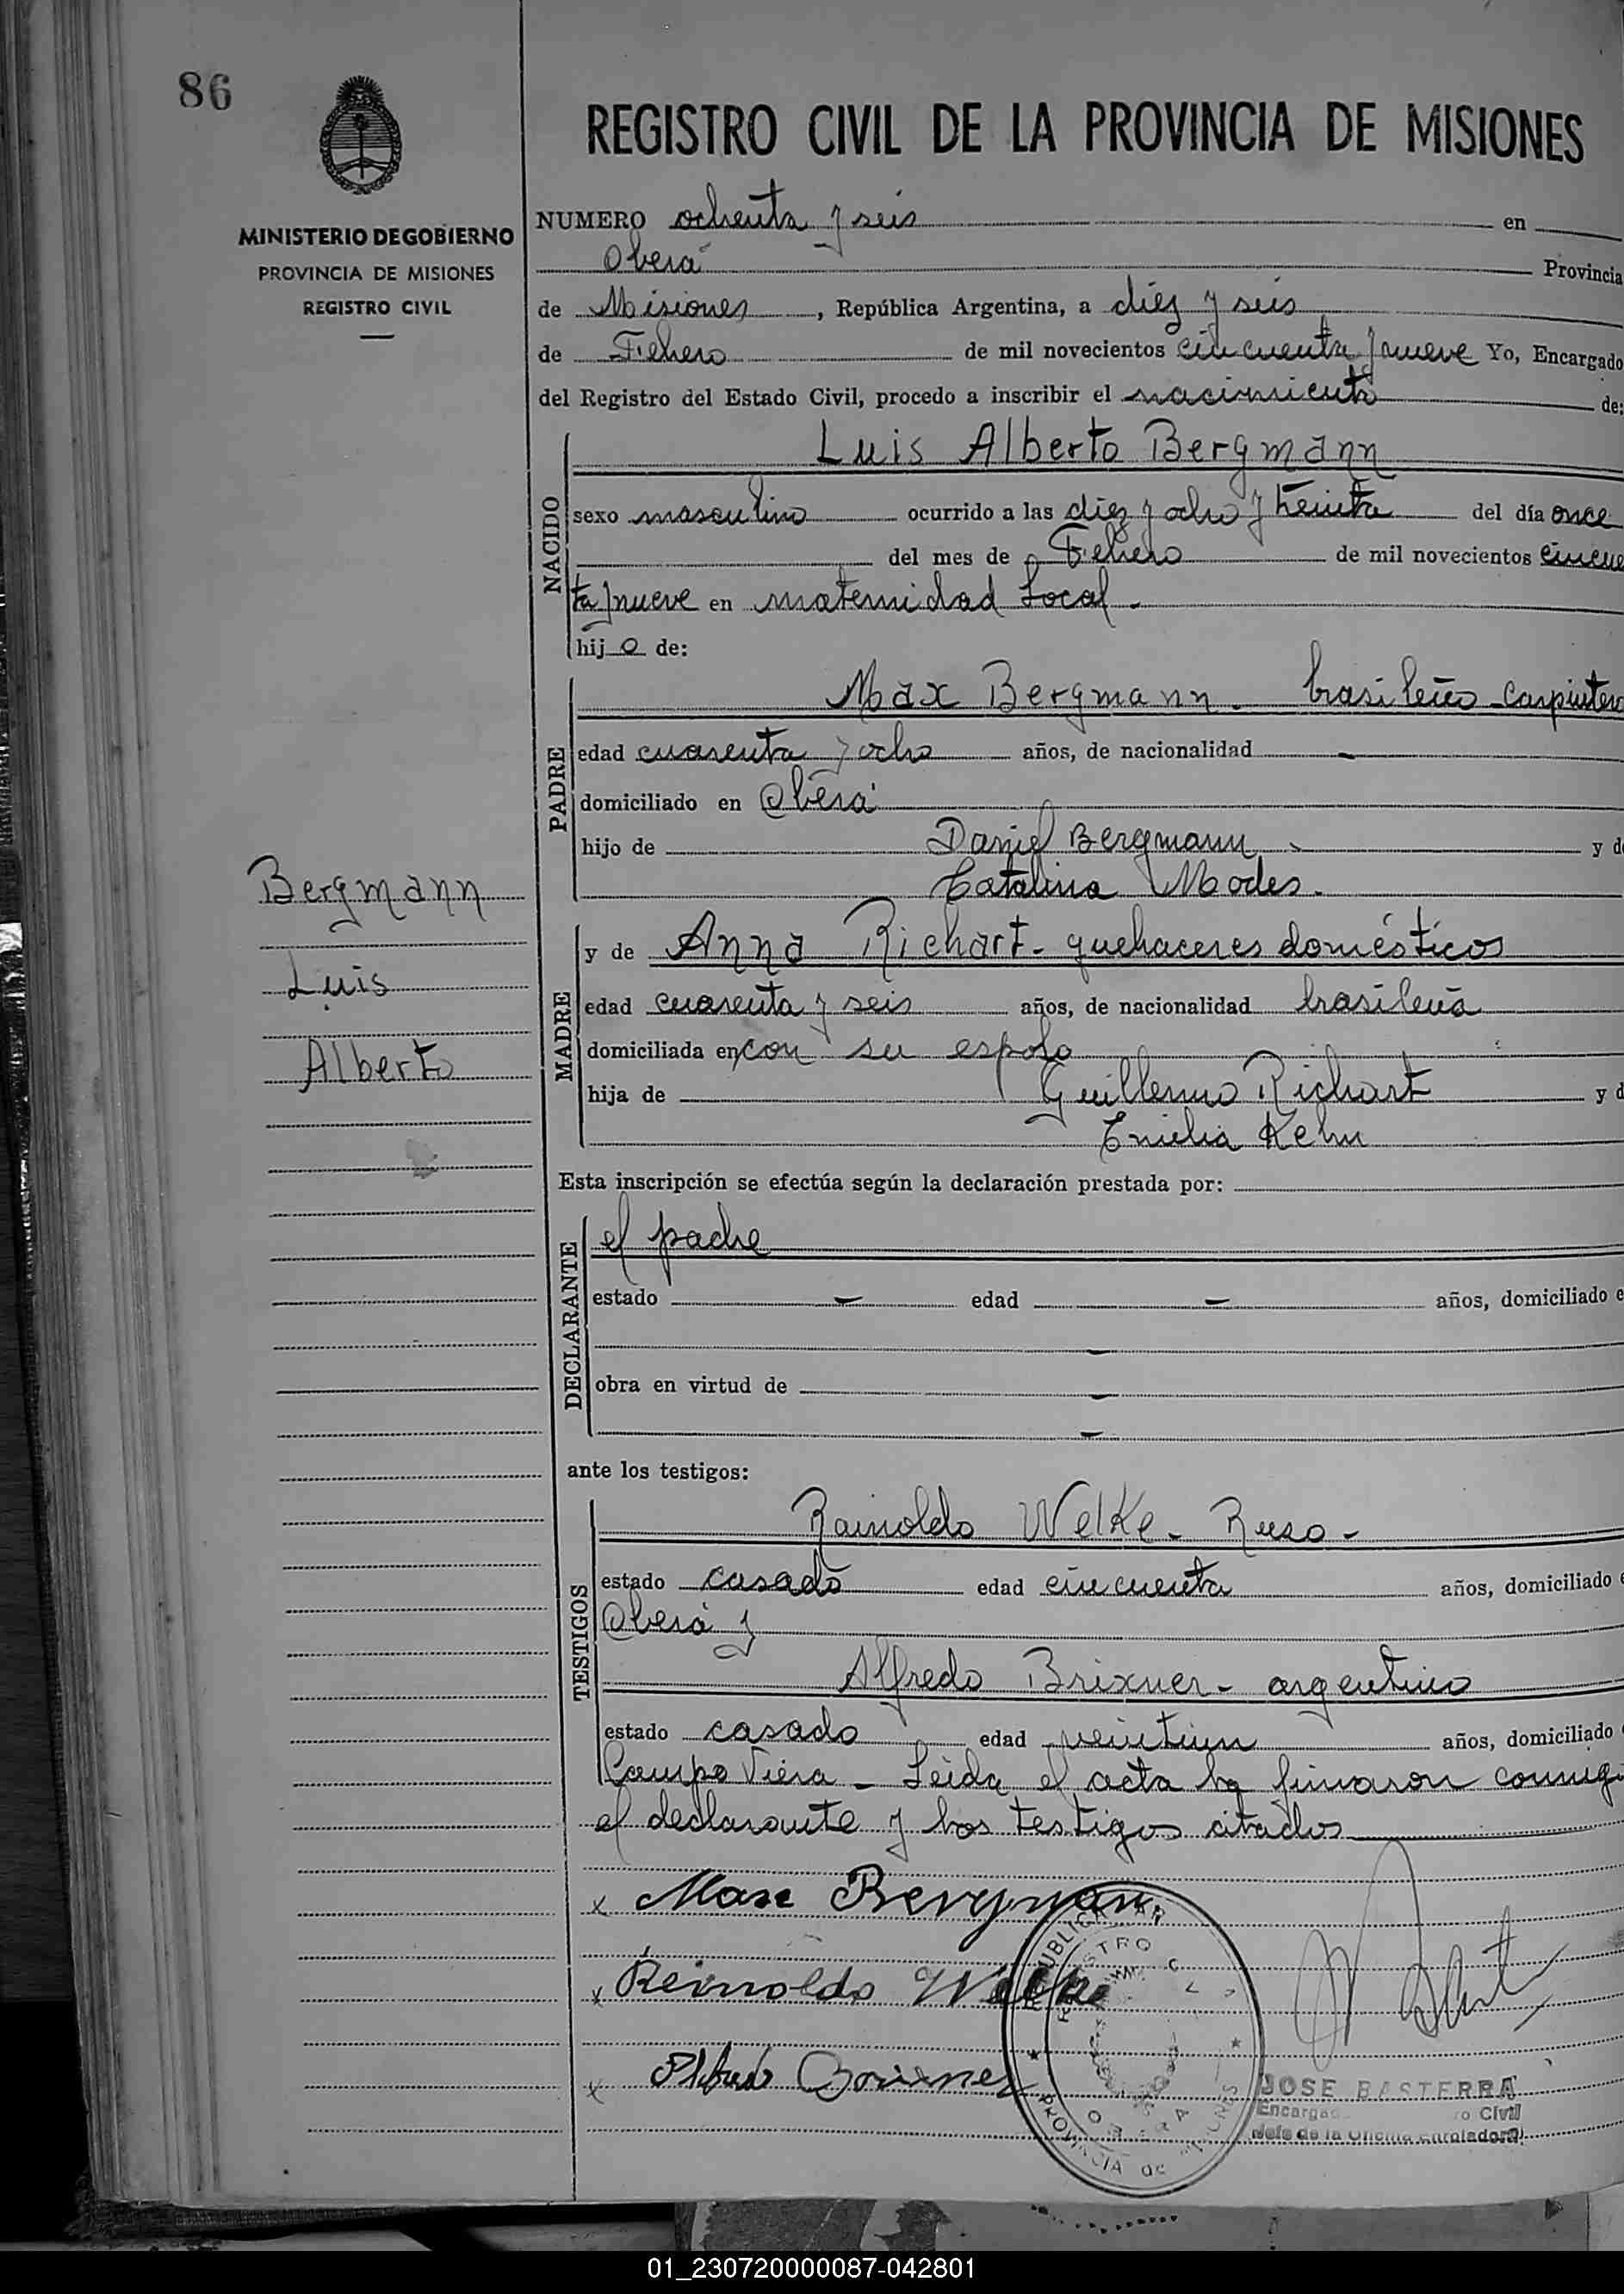 86
REGISTRO CIVIL DE LA PROVINCIA DE MISIONES
MINISTERIO DE GOBIERNO
PROVINCIA DE MISIONES
REGISTRO CIVIL
NUMERO ochenta y seis en
Oberá Provincia
de Misiones, República Argentina, a diez y seis
de Febrero de mil novecientos cincuenta y nueve Yo, Encargado
del Registro del Estado Civil, procedo a inscribir el nacimiento de:
NACIDO
Luis Alberto Bergmann
sexo masculino ocurrido a las diez y ocho y treinta del día once
del mes de Febrero de mil novecientos cincuen
ta y nueve en maternidad local.-
hijo de:
PADRE
Max Bergmann - brasileño - carpintero
edad cuarenta y ocho años, de nacionalidad -
domiciliado en Oberá
hijo de Daniel Bergmann y de
Catalina Modes.
Bergmann
Luis
Alberto
MADRE
y de Anna Richart - quehaceres domésticos
edad cuarenta y seis años, de nacionalidad brasileña
domiciliada en con su esposo
hija de Guillermo Richart y d
Emilia Kehn
Esta inscripción se efectúa según la declaración prestada por:
DECLARANTE
el padre
estado - edad - años, domiciliado e
-
obra en virtud de -
-
ante los testigos:
TESTIGOS
Rainoldo Welke - Ruso -
estado casado edad cincuenta años, domiciliado e
Oberá y
Alfredo Brixner - argentino
estado casado edad veintiun años, domiciliado
Campo Viera - Leida el acta la firmaron conmigo
el declarante y los testigos citados
x Max Bergman
x Reinoldo Welke
x
PROVINCIA de MISIONES
OBERA
JOSE BASTERRA
Encargad ro Civil
Jefe de la Oficina Enroladora
01_230720000087-042801